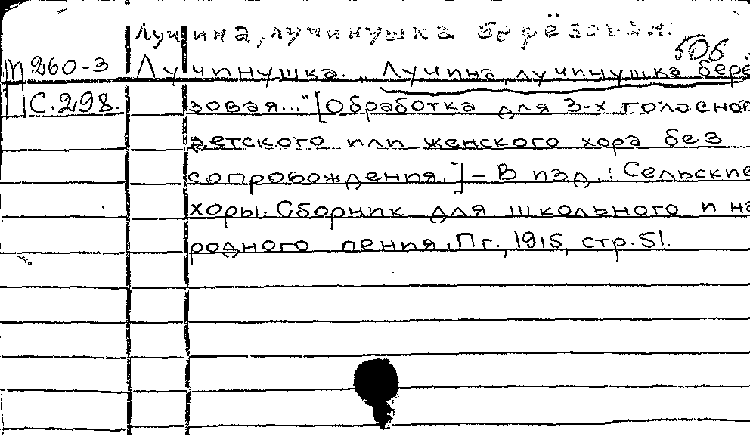 Лучина, лучинушка берёзовая.
505.
П 260-3 Лучинушка. „Лучина, лучинушка бере
С.298. зовая..." [Обработка для 3-х голосног
детского или женского хора без
сопровождения.] – В изд.: Сельские
хоры. Сборник для школьного и на
родного пения, Пг., 1915, стр. 51.